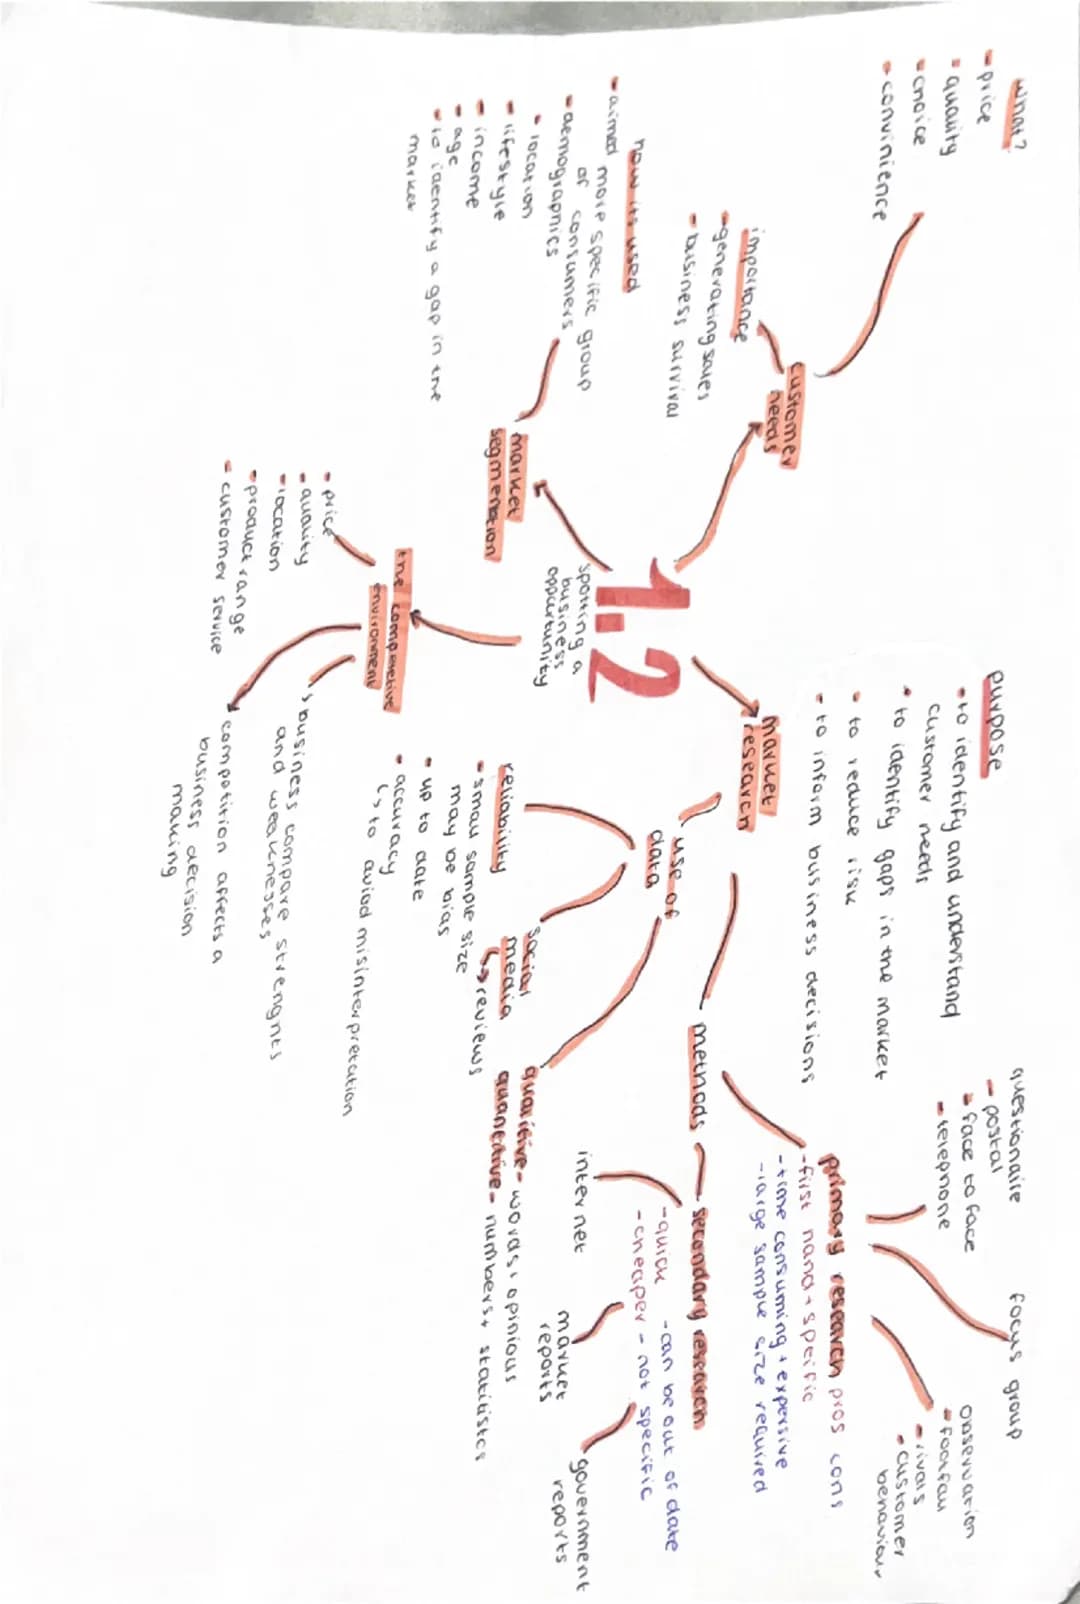 what?
- price
- quality
- choice
- convinience
customer
needs
importance
- generating sales
- business survival
how its used
- aimed more specific group
of consumers
- demographics
- location
- lifestyle
- income
- age
- to identify a gap in the
market
market
segmentation
1.2
spotting a
business
oppurtunity
the competitive
environment
- price
- quality
- location
- product range
- customer service
↳ business compare strenghts
and weaknesses
competition affects a
business decision
making
purpose
- to identify and understand
customer needs
- to identify gaps in the market
- to reduce risk
- to inform business decisions
market
research
use of
data
reliability
- small sample size
may be bias
- up to date
- accuracy
↳ to aviod misinterpretation
social
media
↳ reviews
qualitive - words, opinious
quantitive - numbers + statilistcs
methods
primary research pros cons
- first hand + speific
- time consuming + expensive
- large sample size required
questionaire
- postal
- face to face
- telephone
focus group
observation
- footfall
- rivals
- customer
behaviour
secondary research
- quick - can be out of date
- cheaper - not specific
internet
market
reports
government
reports